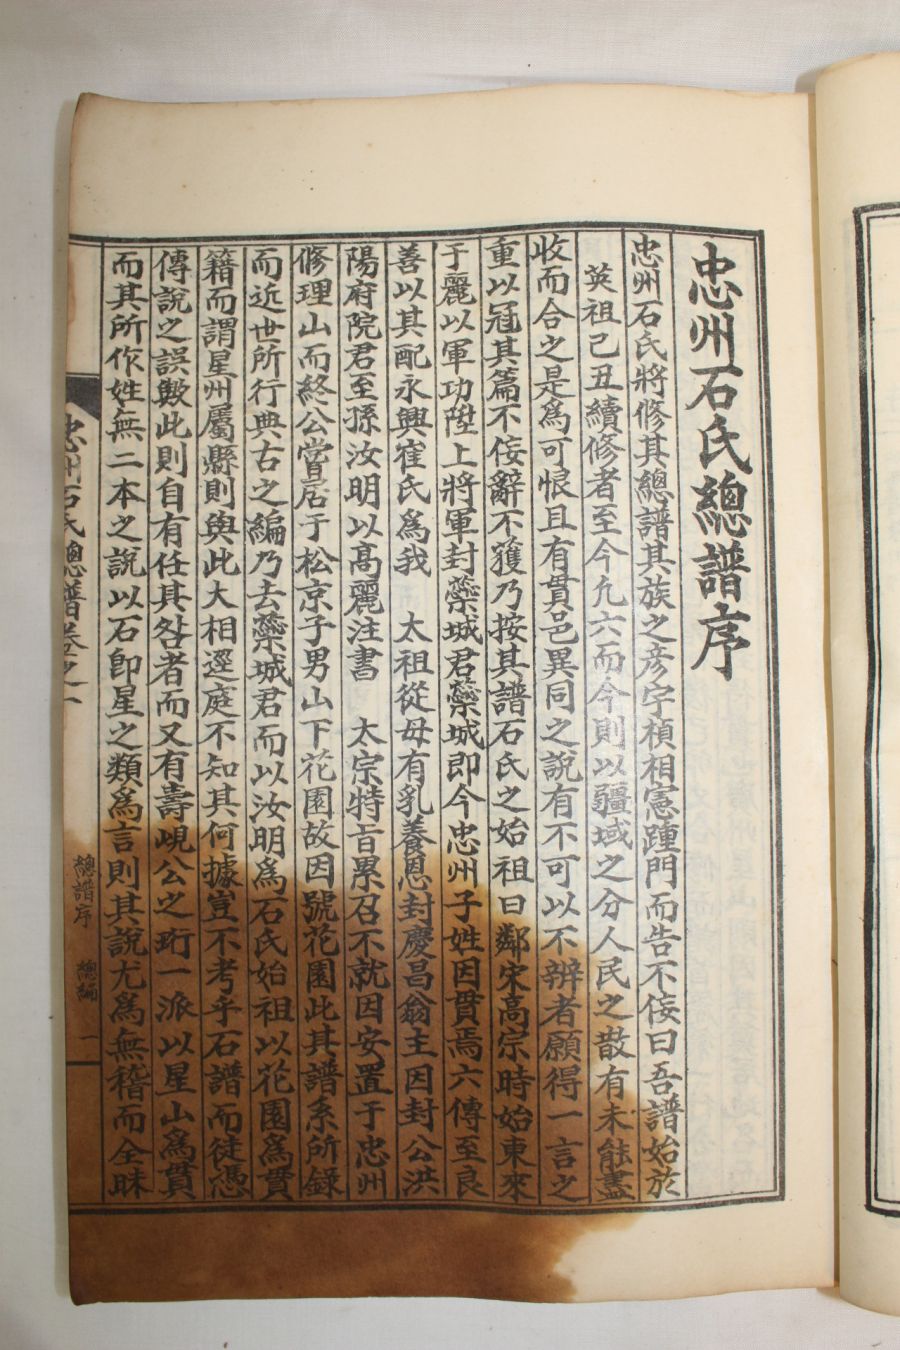 忠州石氏總譜序
忠州石氏將修其總譜其族之彦宇楨相憲踵門而告不侫曰吾譜始於
英祖己丑續修者至今凢六而今則以疆域之分人民之散有未能盡
收而合之是爲可恨且有貫邑異同之說有不可以不辨者願得一言之
重以冠其篇不侫辭不獲乃按其譜石氏之始祖曰鄰宋高宗時始東來
于麗以軍功陞上將軍封蘂城君蘂城即今忠州子姓因貫焉六傳至良
善以其配永興崔氏爲我 太祖從母有乳養恩封慶昌翁主因封公洪
陽府院君至孫汝明以高麗注書 太宗特旨累召不就因安置于忠州
修理山而終公嘗居于松京子男山下花園故因號花園此其譜系所錄
而近世所行典古之編乃去蘂城君而以汝明爲石氏始祖以花園爲貫
籍而謂星州屬縣則與此大相逕庭不知其何據豈不考乎石譜而徒憑
傳說之誤歟此則自有任其咎者而又有壽峴公之珩一派以星山爲貫
而其所作姓無二本之說以石卽星之類爲言則其說尤爲無稽而全昧
忠州石氏總譜卷之一
總譜序 總編 一